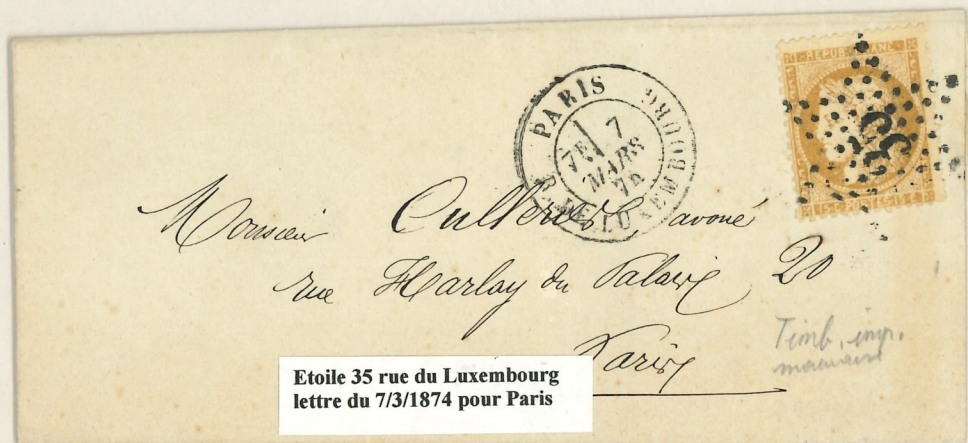 REPUB FRANC
35
15 C POSTES 15 C
PARIS
7E
7
MARS
74
R. DE LUXEMBOURG
Monsieur avoué
rue Harlay du Palais 20
Paris
Timb. imp.
mauvais
Etoile 35 rue du Luxembourg
lettre du 7/3/1874 pour Paris